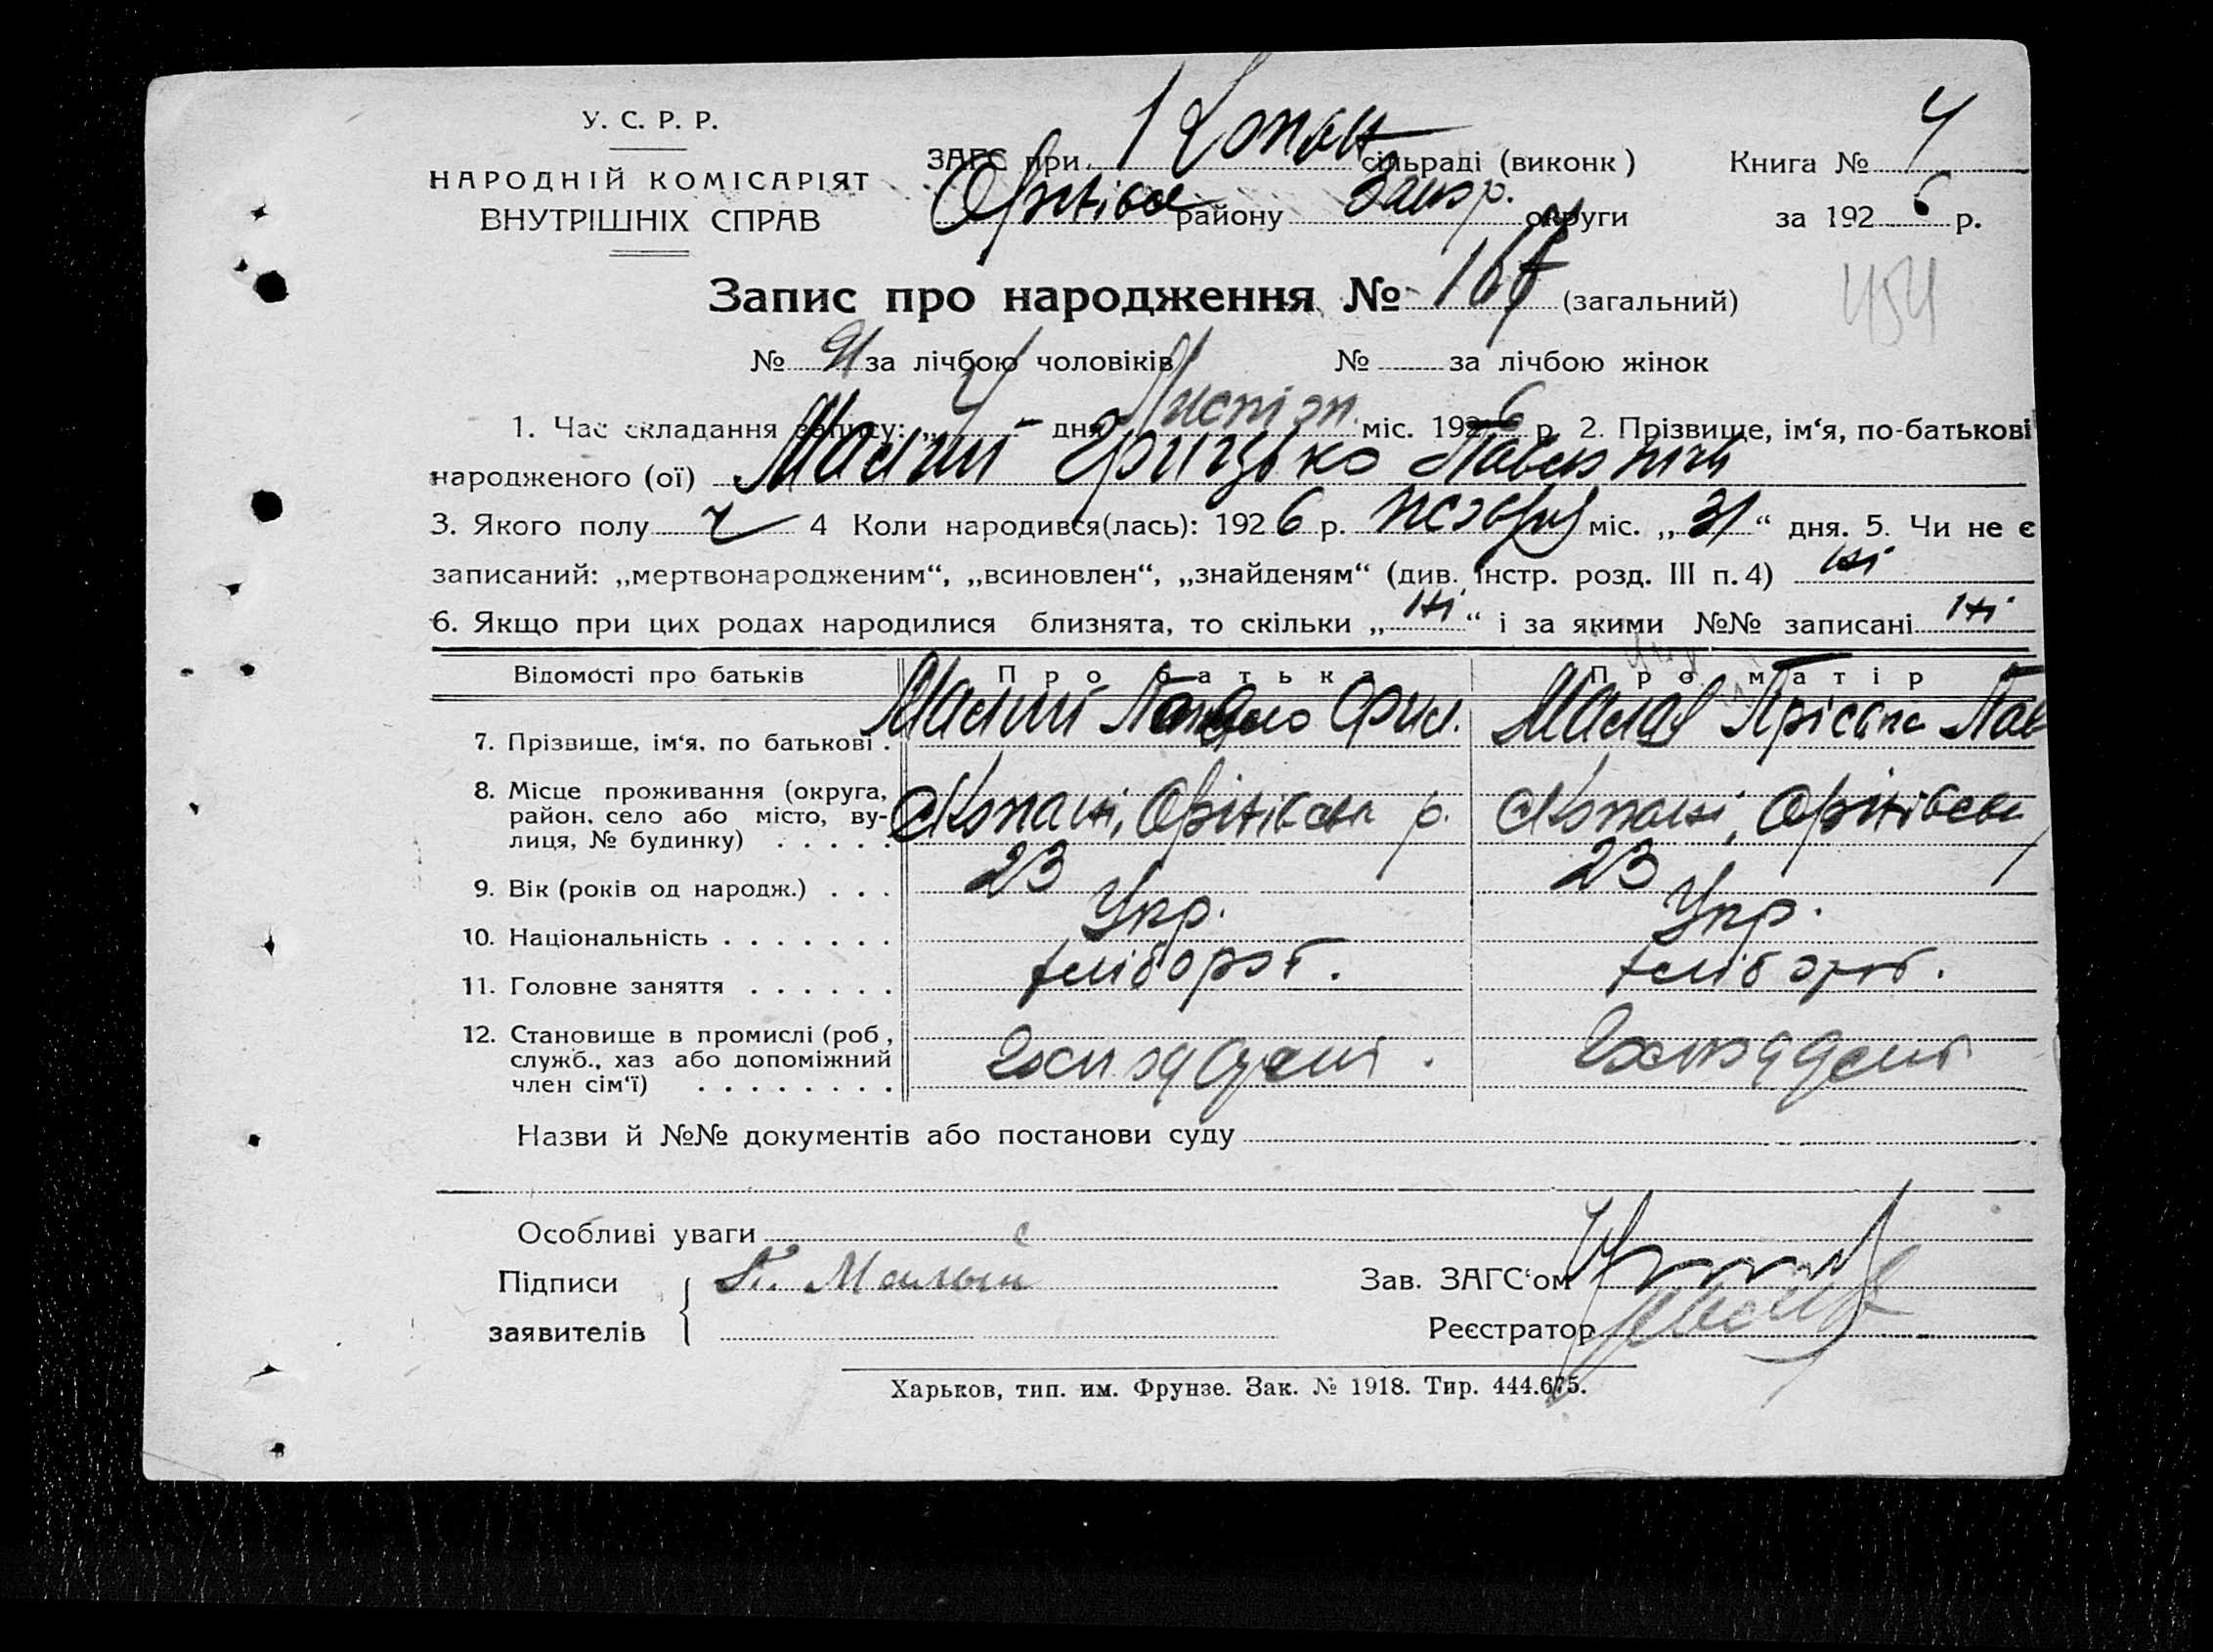 У. С. Р. Р.
НАРОДНІЙ КОМІСАРІЯТ
ВНУТРІШНІХ СПРАВ
ЗАГС при 1 Копан сільраді (виконк)
Оріхівск району Запор. округи
Книга № 4
за 1926 р.
Запис про народження № 167 (загальний)
454
№ 91 за лічбою чоловіків № за лічбою жінок
1. Час складання запису: „4“ дня Листоп. міс. 1926 р. 2. Прізвище, ім‘я, по-батькові
народженого (ої) Малий Грицько Павлович
3. Якого полу ч 4 Коли народився(лась): 1926 р. жовтня міс. „31“ дня. 5. Чи не є
записаний: „мертвонародженим“, „всиновлен“, „знайденям“ (див. інстр. розд. III п. 4) ні
6. Якщо при цих родах народилися близнята, то скільки „ні“ і за якими №№ записані ні
Відомості про батьків Про батька Про матір
7. Прізвище, ім‘я, по батькові . Малий Павло Фил. Малая Пріська Пав
8. Місце проживання (округа,
район, село або місто, ву-
лиця, № будинку) . . . . . с Копані, Оріхівськ р. с Копані, Оріхівськ
9. Вік (років од народж.) . . . 23 23
10. Національність . . . . . . . Укр. Укр.
11. Головне заняття . . . . . . хлібороб. хлібороб.
12. Становище в промислі (роб,
служб., хаз або допоміжний
член сім‘ї) . . . . . . . .
Назви й №№ документів або постанови суду
Особливі уваги
Підписи
заявителів
П. Малый
Зав. ЗАГС‘ом
Реєстратор
Харьков, тип. им. Фрунзе. Зак. № 1918. Тир. 444.675.